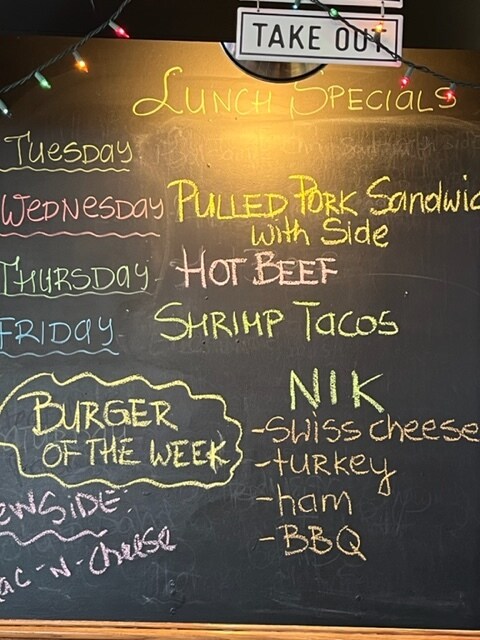 TAKE OUT
LUNCH SPECIALS
TUESDAY
WEDNESDAY PULLED PORK Sandwic
with Side
THURSDAY HOT BEEF
FRIDAY SHRIMP TACOS
BURGER
OF THE WEEK
NIK
-Swiss cheese
-turkey
-ham
-BBQ
ewSIDE:
ac-N-Cheese